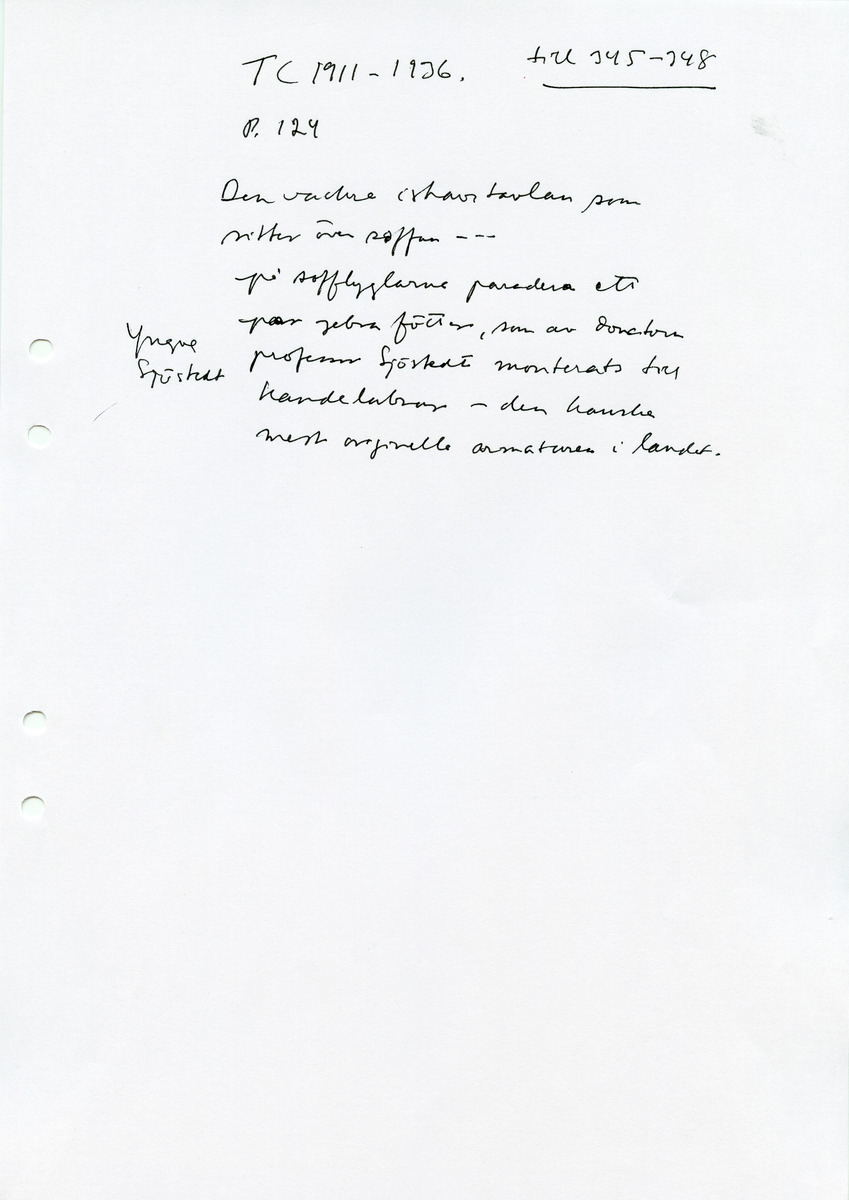 TC 1911-1936.
till 345-348
p. 124
Den vackra ishavstavlan som
sitter över soffan ---
på sofflyglarna paradera ett
par zebra fötter, som av donatorn
Yngve
Sjöstedt
professor Sjöstedt monterats till
kandelabrar - den kanske
mest originella armaturen i landet.